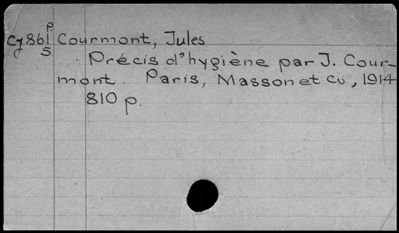 p
Cy861 Courmont, Jules
S
Précis d'hygiène par J. Cour-
mont. Paris, Masson et Cie, 1914
810 p.